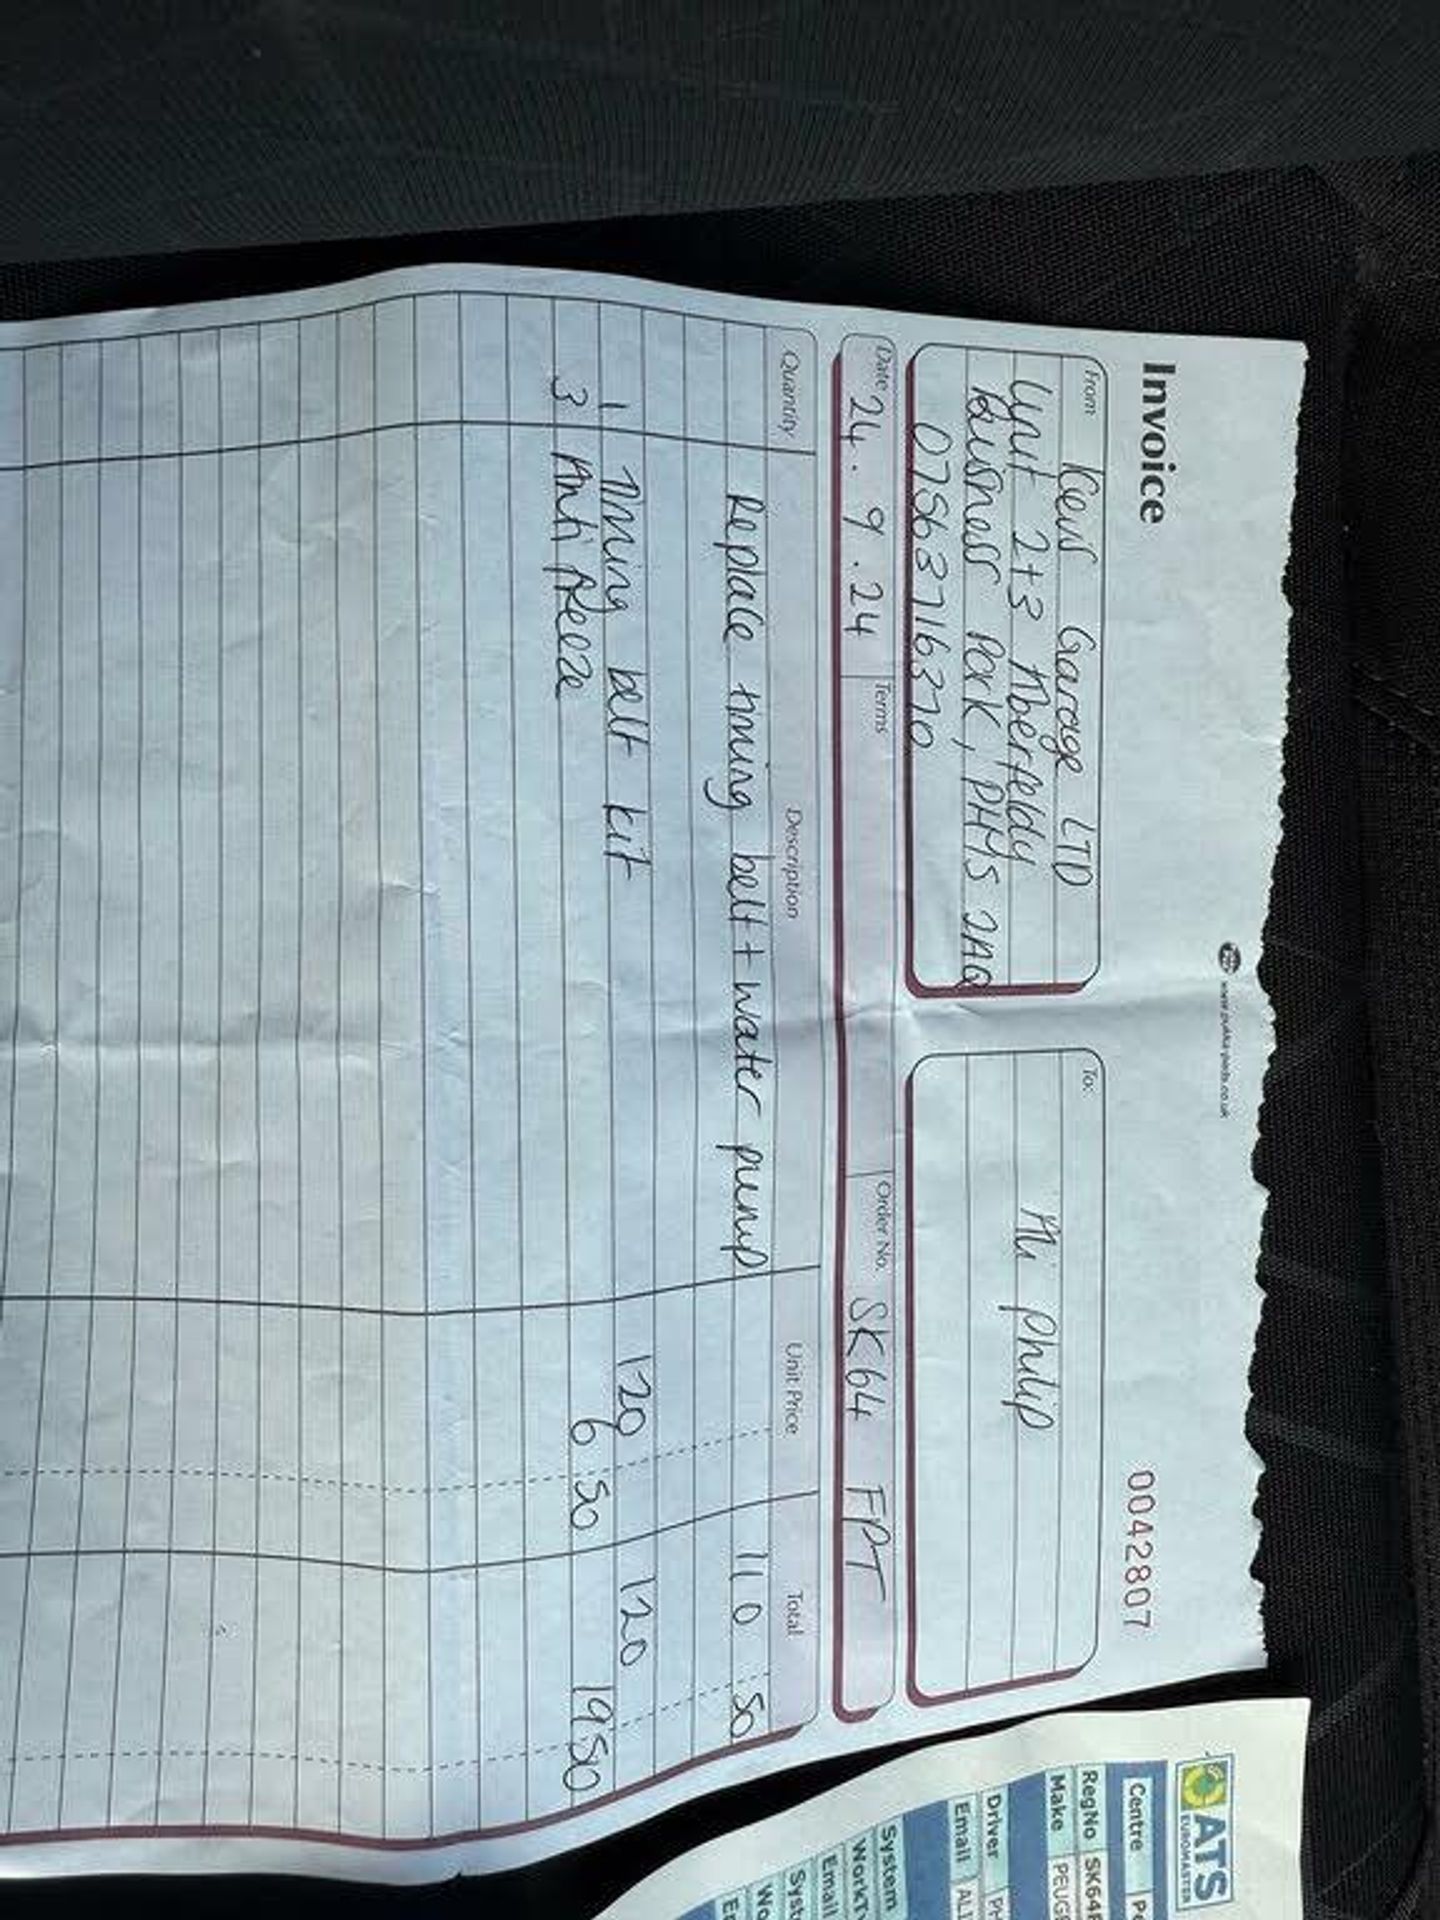 Invoice
www.pukka-pads.co.uk
0042807
From
Kens Garage LTD
Unit 2+3 Aberfeldy
Buisness Park, PH15 2AQ
07563716370
To:
Ali Philip
Date 24.9.24
Terms
Order No. SK64 FPT
Quantity Description Unit Price Total
Replace timing belt + water pump 110 50
1 Timing belt kit 120 120
3 Anti freeze 6 50 19 50
ATS
EUROMASTER
Centre
RegNo SK64
Make PEUG
Driver PH
Email ALI
System
Email